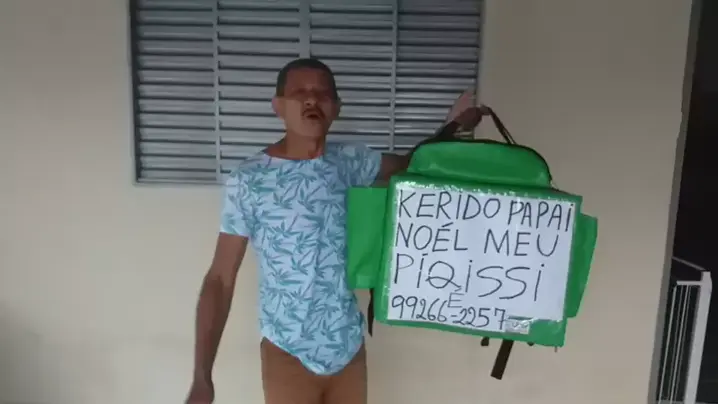 KERIDO PAPAI
NOÉL MEU
PIQISSI
É
99266-2257